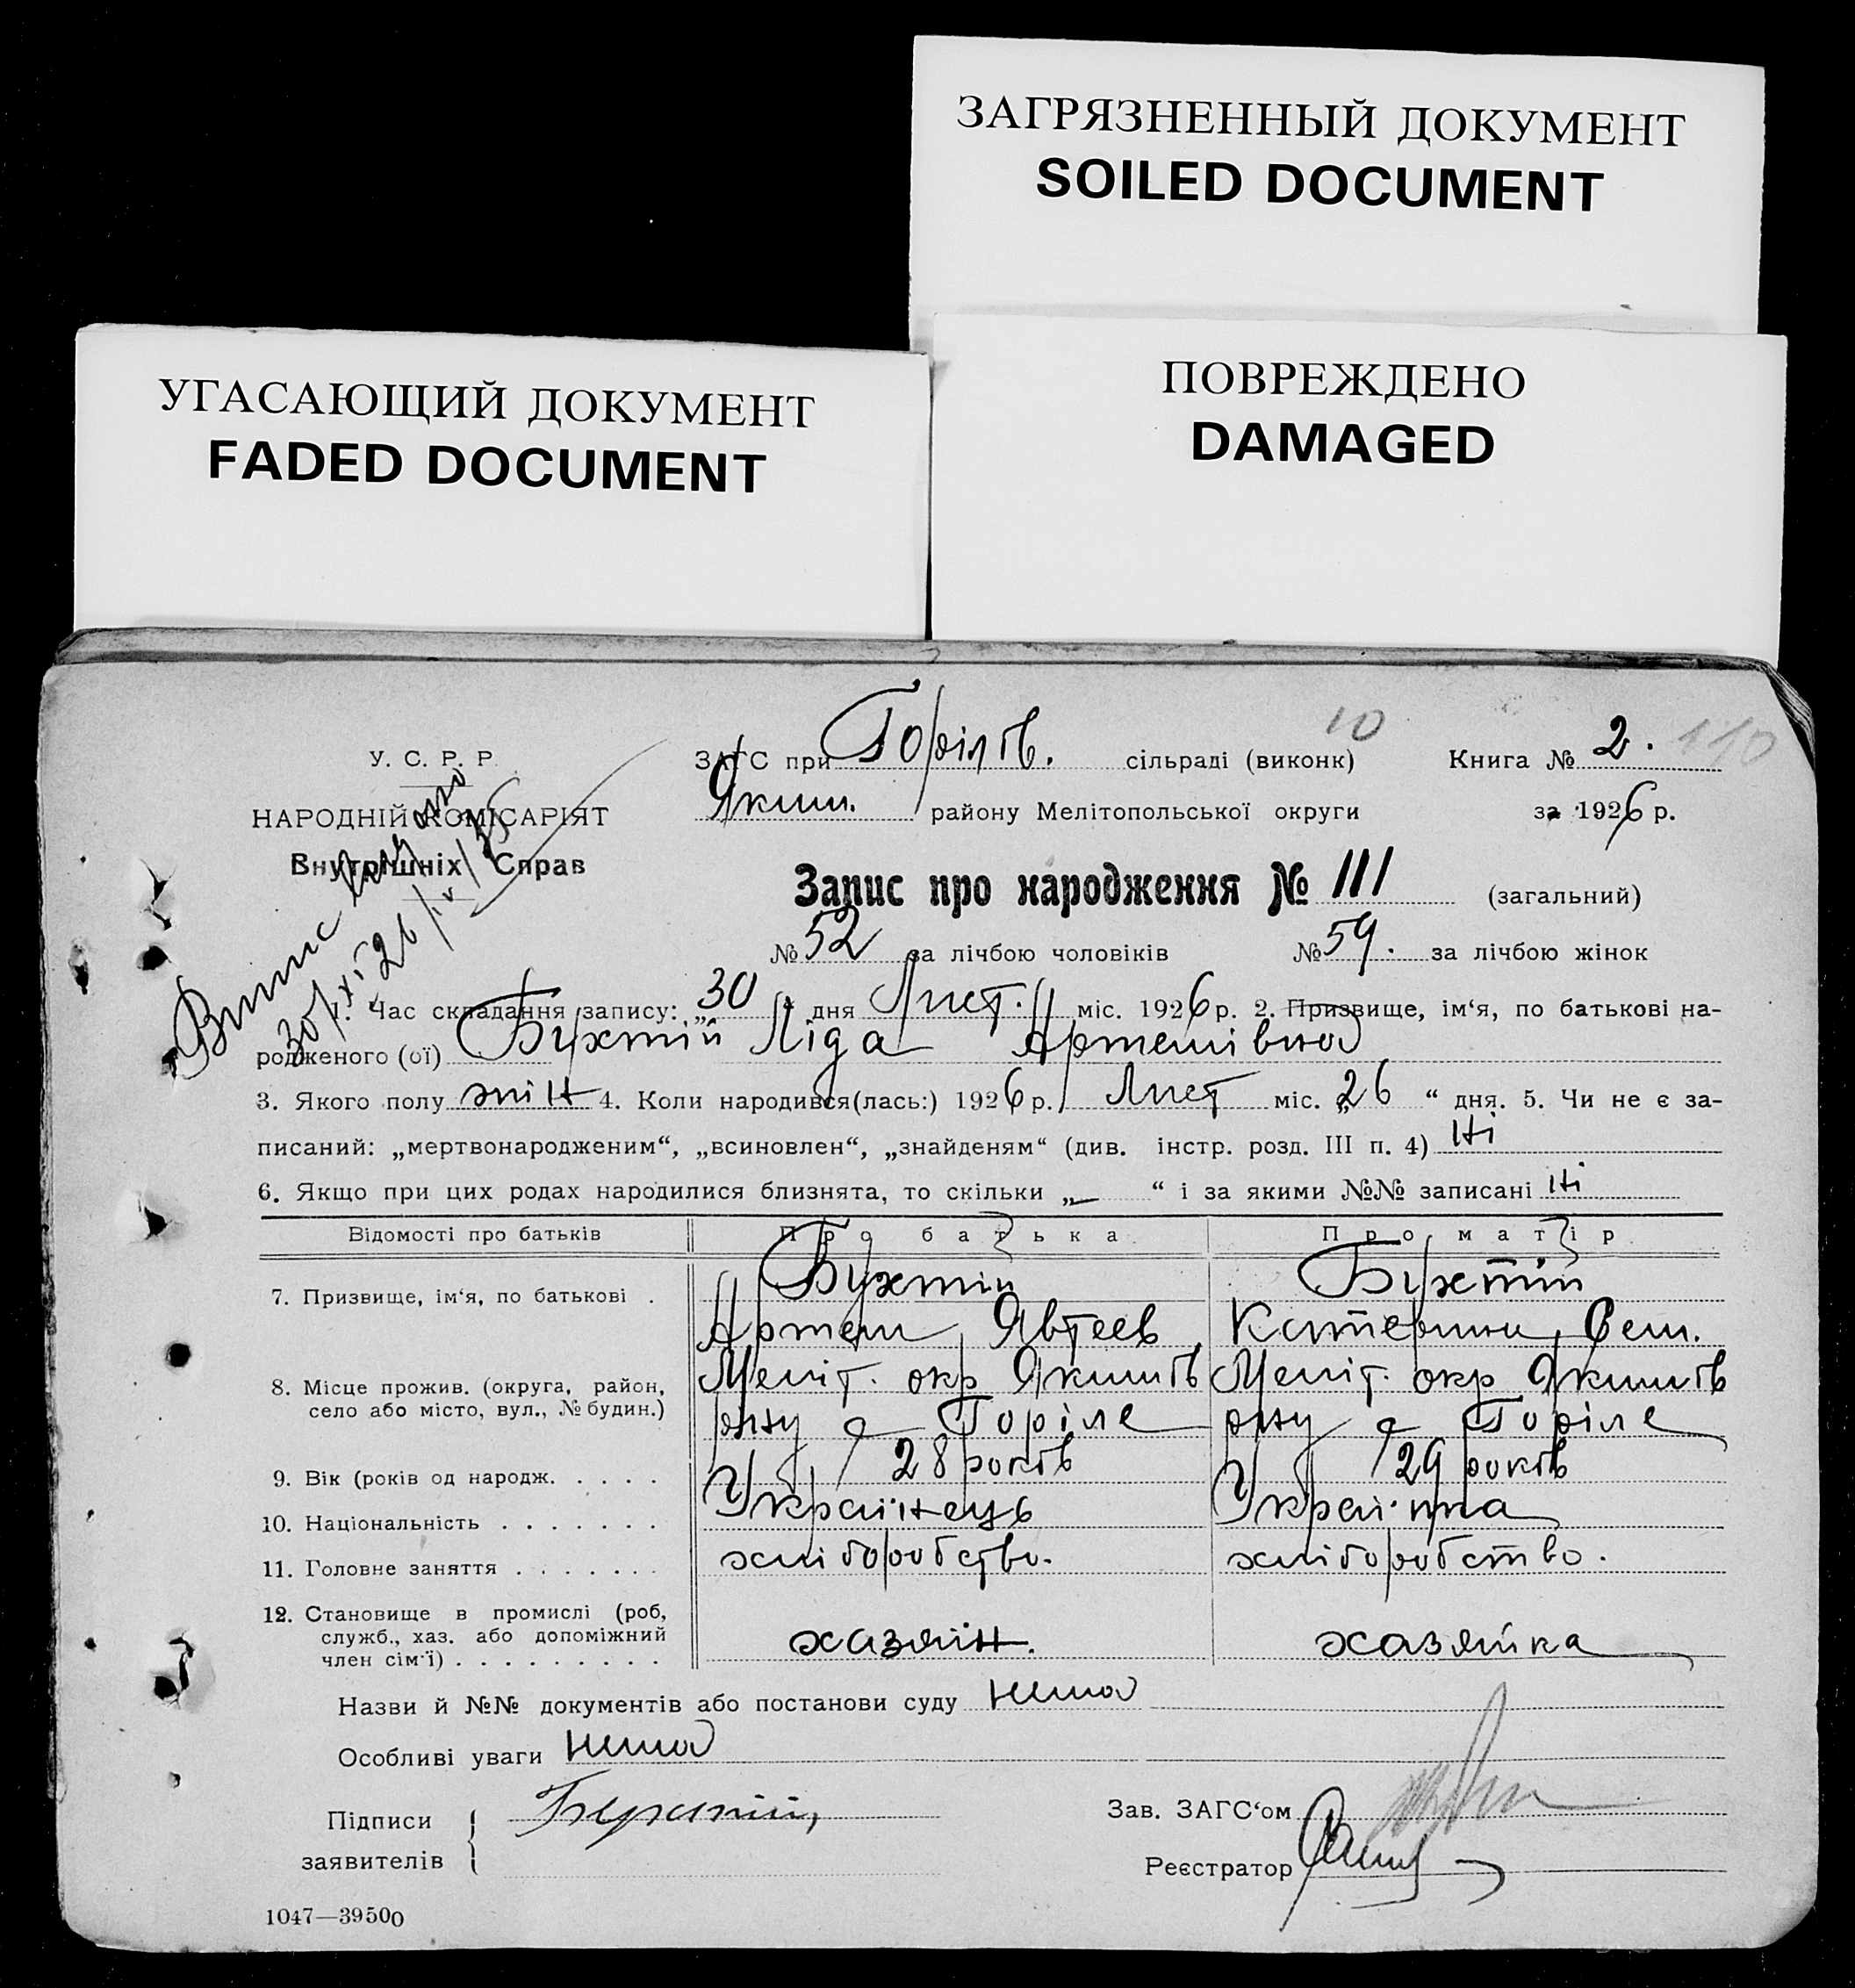 ЗАГРЯЗНЕННЫЙ ДОКУМЕНТ
SOILED DOCUMENT
УГАСАЮЩИЙ ДОКУМЕНТ
FADED DOCUMENT
ПОВРЕЖДЕНО
DAMAGED
У. С. Р. Р.
НАРОДНІЙ КОМІСАРІЯТ
Внутрішніх Справ
10
110
ЗАГС при Горілів. сільраді (виконк) Книга № 2.
Яким. району Мелітопольської округи за 1926 р.
Запис про народження № 111 (загальний)
№ 52 за лічбою чоловіків № 59. за лічбою жінок
Випис
1. Час складання запису: „30“ дня Лист. міс. 1926 р. 2. Призвище, ім‘я, по батькові на-
родженого (ої) Бухтій Ліда Артемівна
3. Якого полу жін 4. Коли народився(лась:) 1926 р. Лист міс. „26“ дня. 5. Чи не є за-
писаний: „мертвонародженим“, „всиновлен“, „знайденям“ (див. інстр. розд. III п. 4) Ні
6. Якщо при цих родах народилися близнята, то скільки „—“ і за якими №№ записані Ні
Відомості про батьків Про батька Про матір
7. Призвище, ім‘я, по батькові . Бухтій Бухтій
Артем Явтеев Катерина Сем.
8. Місце прожив. (округа, район, Меліт. окр Якимів Меліт. окр Якимів
село або місто, вул., № будин.) рну с Горіле рну с Горіле
9. Вік (років од народж. . . . . 28 років 29 років
10. Національність . . . . . . . Українець Українка
11. Головне заняття . . . . . . . хліборобство. хліборобство.
12. Становище в промислі (роб,
служб., хаз. або допоміжний
член сім‘ї) . . . . . . . . . хазяїн. хазяйка
Назви й №№ документів або постанови суду Нема
Особливі уваги Нема
Підписи
заявителів
Зав. ЗАГС‘ом
Реєстратор
1047—39500